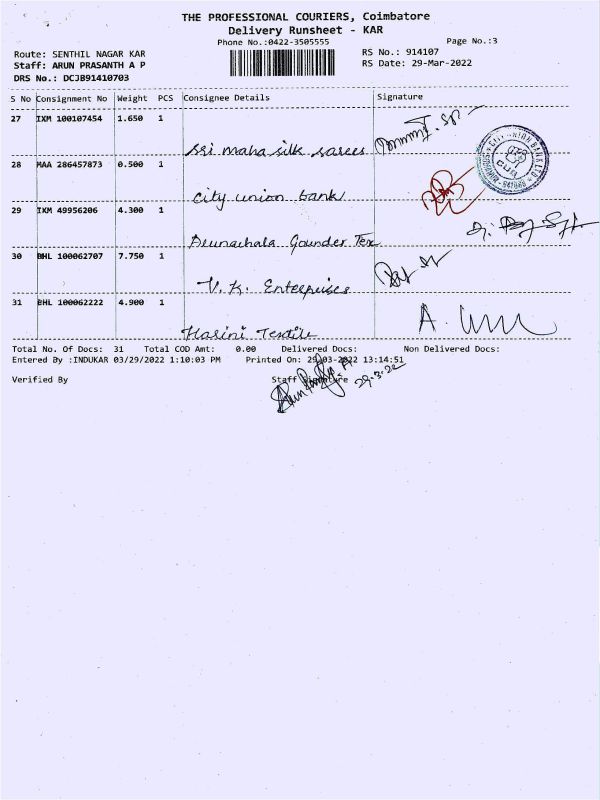 THE PROFESSIONAL COURIERS, Coimbatore
Delivery Runsheet - KAR
Phone No.:0422-3505555
Page No.:3
Route: SENTHIL NAGAR KAR
RS No.: 914107
Staff: ARUN PRASANTH A P
RS Date: 29-Mar-2022
DRS No.: DCJB91410703
S No Consignment No Weight PCS Consignee Details Signature
27 IXM 100107454 1.650 1
Sri maha silk sarees
28 MAA 286457873 0.500 1
city union bank
29 IXM 49956206 4.300 1
Arunachala Gounder Tex
30 BHL 100062707 7.750 1
V.K. Enterprises
31 BHL 100062222 4.900 1
Harini Textile
CITY UNION BANK LTD
CUB
Total No. Of Docs: 31 Total COD Amt: 0.00 Delivered Docs: Non Delivered Docs:
Entered By :INDUKAR 03/29/2022 1:10:03 PM Printed On: 29-03-2022 13:14:51
Verified By Staff Signature
29-3-22